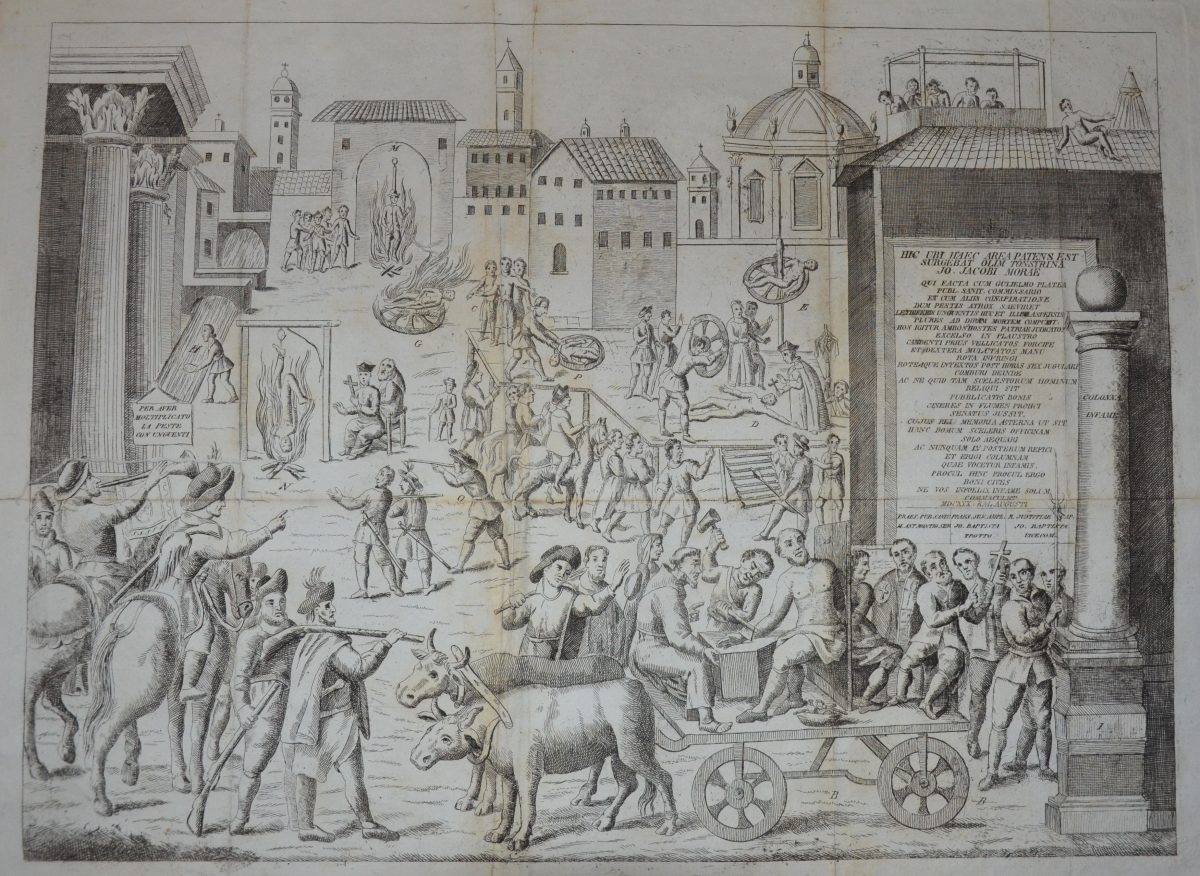 HIC UBI HAEC AREA PATENS EST
SURGEBAT OLIM TONSTRINA
JO. JACOBI MORAE
QUI FACTA CUM GULIELMO PLATEA
PUBL. SANIT. COMMISSARIO
ET CUM ALIIS CONSPIRATIONE
DUM PESTIS ATROX SAEVIRET
LETHIFERIS UNGUENTIS HUC ET ILLUC ASPERSIS
PLURES AD DIRAM MORTEM COMPULIT
HOS IGITUR AMBOS HOSTES PATRIAE JUDICATOS
EXCELSO IN PLAUSTRO
CANDENTI PRIUS VELLICATOS FORCIPE
ET DEXTERA MULCTATOS MANU
ROTA INFRINGI
ROTAEQUE INTEXTOS POST HORAS SEX JUGULARI
COMBURI DEINDE
AC NE QUID TAM SCELESTORUM HOMINUM
RELIQUI SIT
PUBLICATIS BONIS
CINERES IN FLUMEN PROIICI
SENATUS JUSSIT
CUJUS REI MEMORIA AETERNA UT SIT
HANC DOMUM SCELERIS OFFICINAM
SOLO AEQUARI
AC NUNQUAM IN POSTERUM REFICI
ET ERIGI COLUMNAM
QUAE VOCETUR INFAMIS
PROCUL HINC PROCUL ERGO
BONI CIVES
NE VOS INFOELIX INFAME SOLUM
COMMACULET
MDCXXX. KAL. AUGUSTI
JO. BAPTISTA
JO. BAPTISTA
TROTTO
VICECOM.
COLONNA
INFAME
PER AVER
MOLTIPLICATO
LA PESTE
CON UNGUENTI
M
G
H
C
E
P
D
N
O
B
I